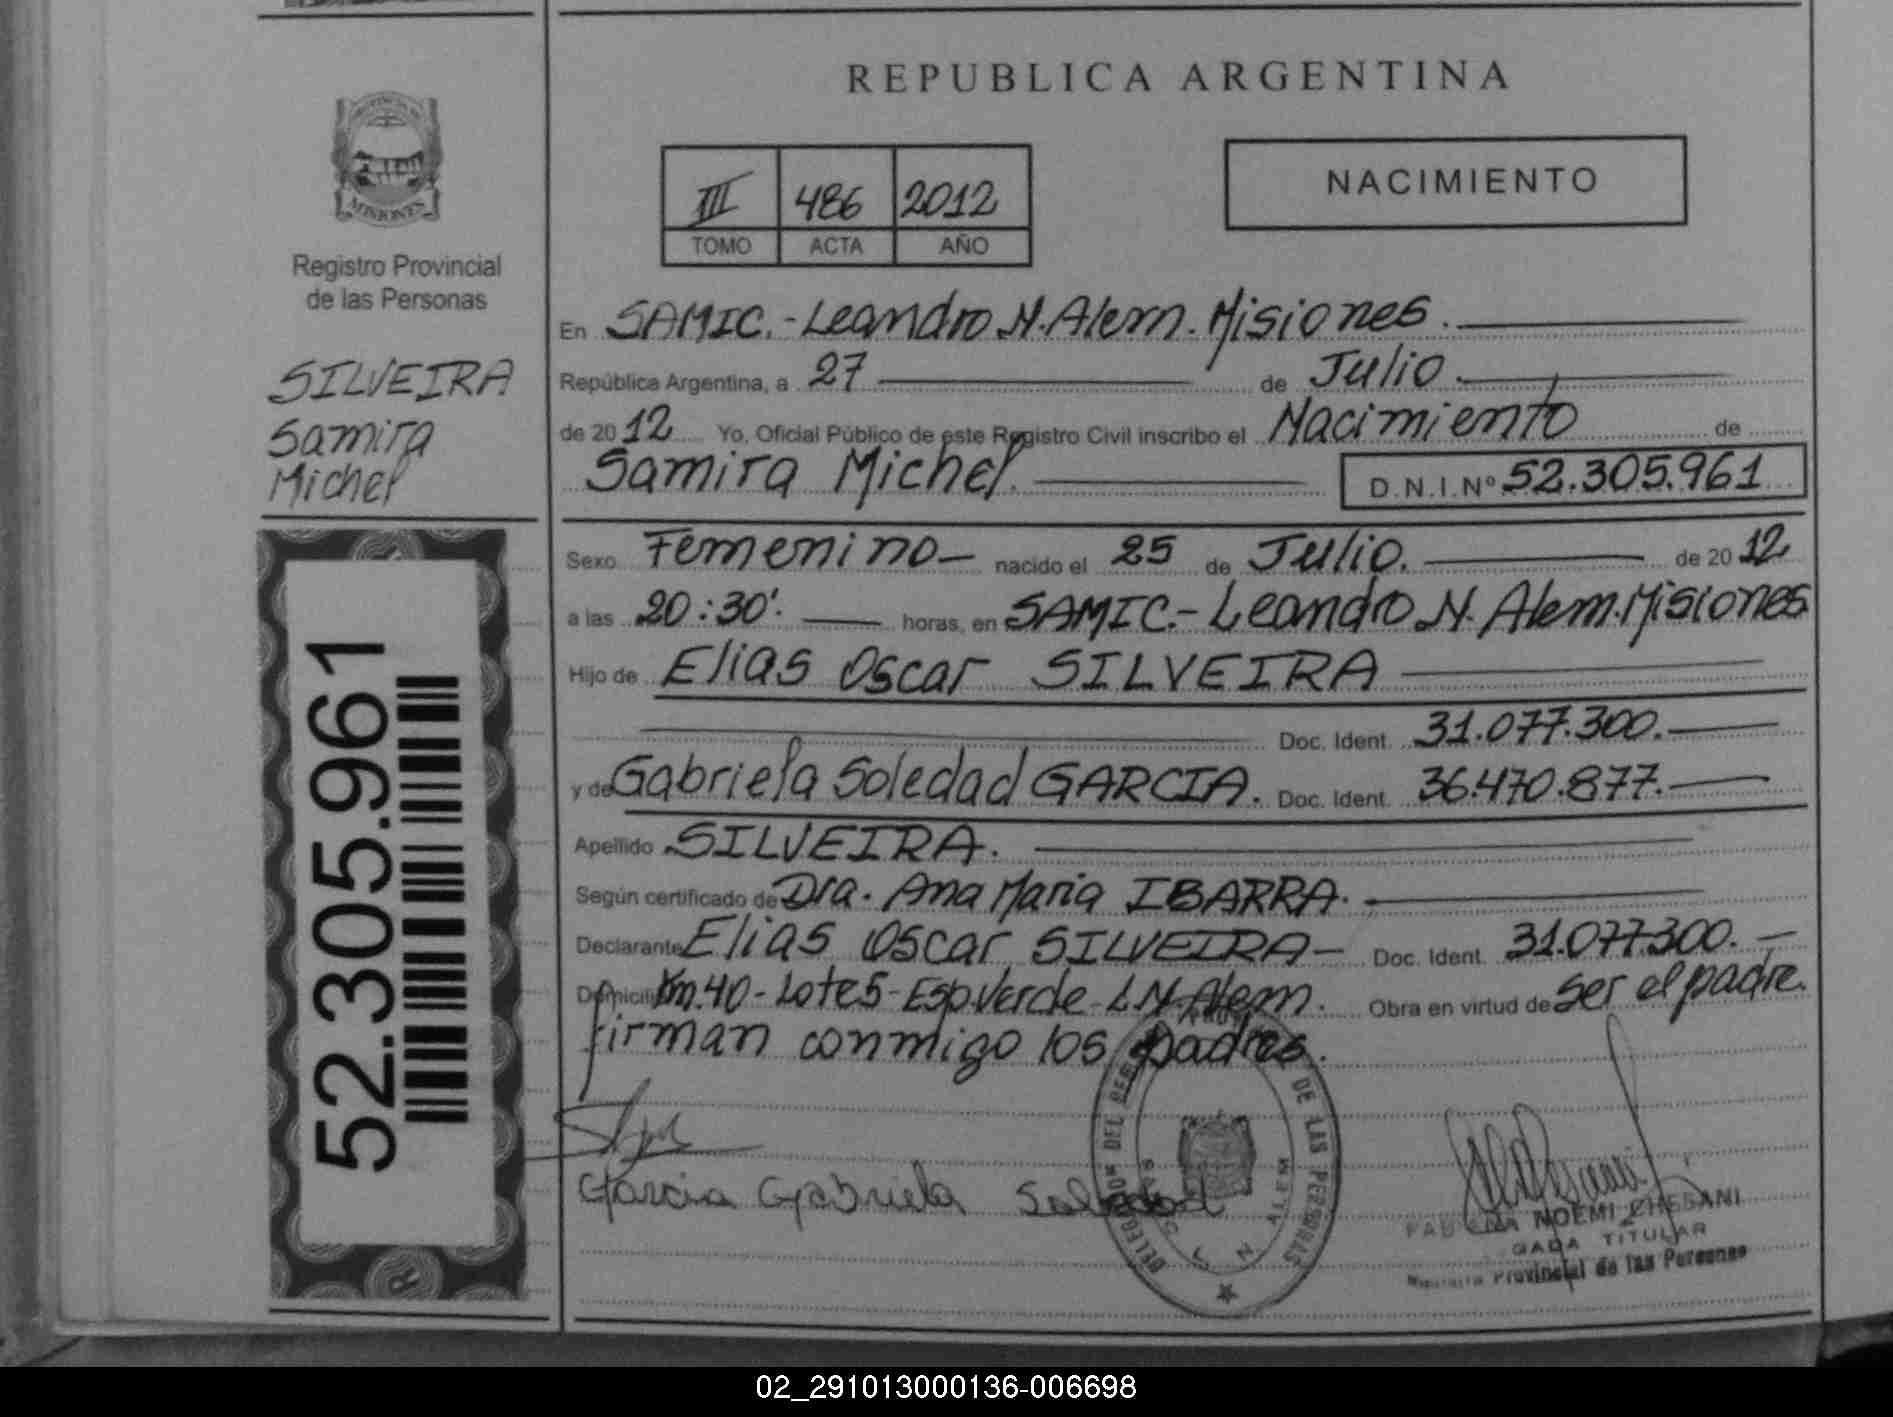 REPUBLICA ARGENTINA
PROVINCIA DE
MISIONES
Registro Provincial
de las Personas
SILVEIRA
Samira
Michel
52.305.961
III 486 2012
TOMO ACTA AÑO
NACIMIENTO
En SAMIC.-Leandro N. Alem. Misiones.
República Argentina, a 27 de Julio.
de 2012 Yo, Oficial Público de este Registro Civil inscribo el Nacimiento de
Samira Michel. D.N.I.Nº 52.305.961
Sexo Femenino- nacido el 25 de Julio. de 2012
a las 20:30'. horas, en SAMIC.- Leandro N. Alem. Misiones
Hijo de Elias Oscar SILVEIRA
Doc. Ident. 31.077.300.
y de Gabriela Soledad GARCIA. Doc. Ident. 36.470.877.
Apellido SILVEIRA.
Según certificado de Dra. Ana Maria IBARRA.
Declarante Elias Oscar SILVEIRA- Doc. Ident. 31.077.300.
Domicilio Km.40-Lote5-Esp.Verde-L.N.Alem. Obra en virtud de ser el padre.
firman conmigo los padres.
Garcia Gabriela Soledad
DE LAS PERSONAS
L. N. ALEM
NOEMI
TITULAR
Provincial de las Personas
02_291013000136-006698